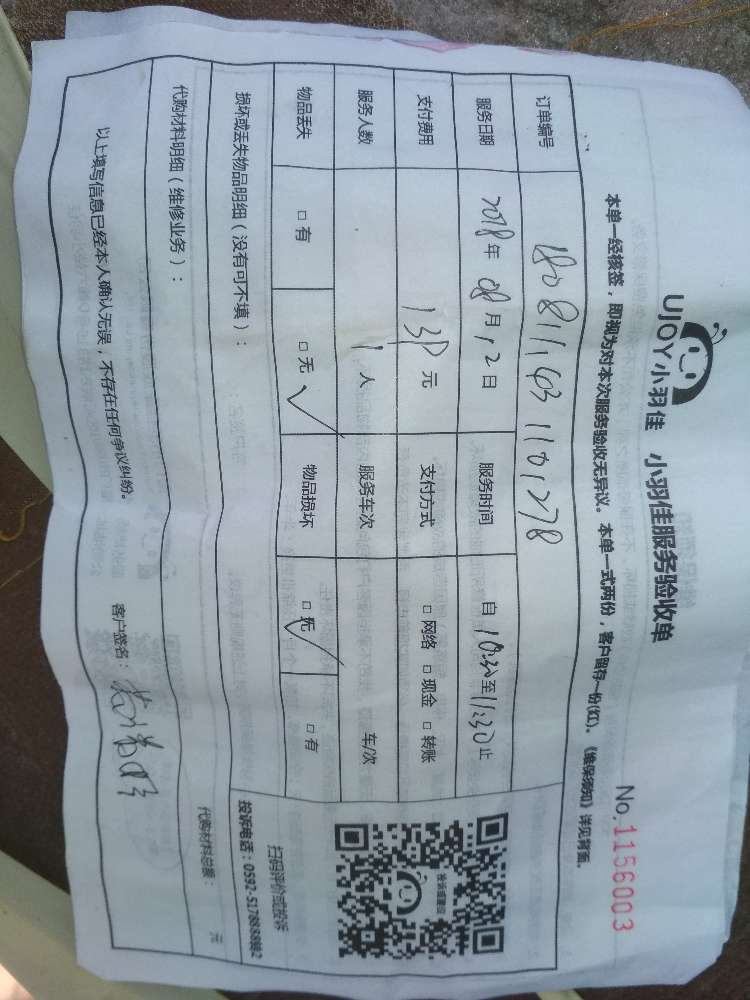 UJOY小羽佳 小羽佳服务验收单
No.1156003
本单一经核签，即视为对本次服务验收无异议。本单一式两份，客户留存一份(红)。《维保须知》详见背面。
订单编号
服务日期 2018年08月12日 服务时间 自10:30至11:30止
支付费用 138元 支付方式 □网络 □现金 □转账
服务人数 1人 服务车次 车/次
物品丢失 □有 □无 ✓ 物品损坏 □无 ✓ □有
损坏或丢失物品明细（没有可不填）：
代购材料明细（维修业务）： 代购材料总额： 元
扫码评价或投诉
投诉电话：0592-5178888转2
以上填写信息已经本人确认无误，不存在任何争议纠纷。 客户签名：